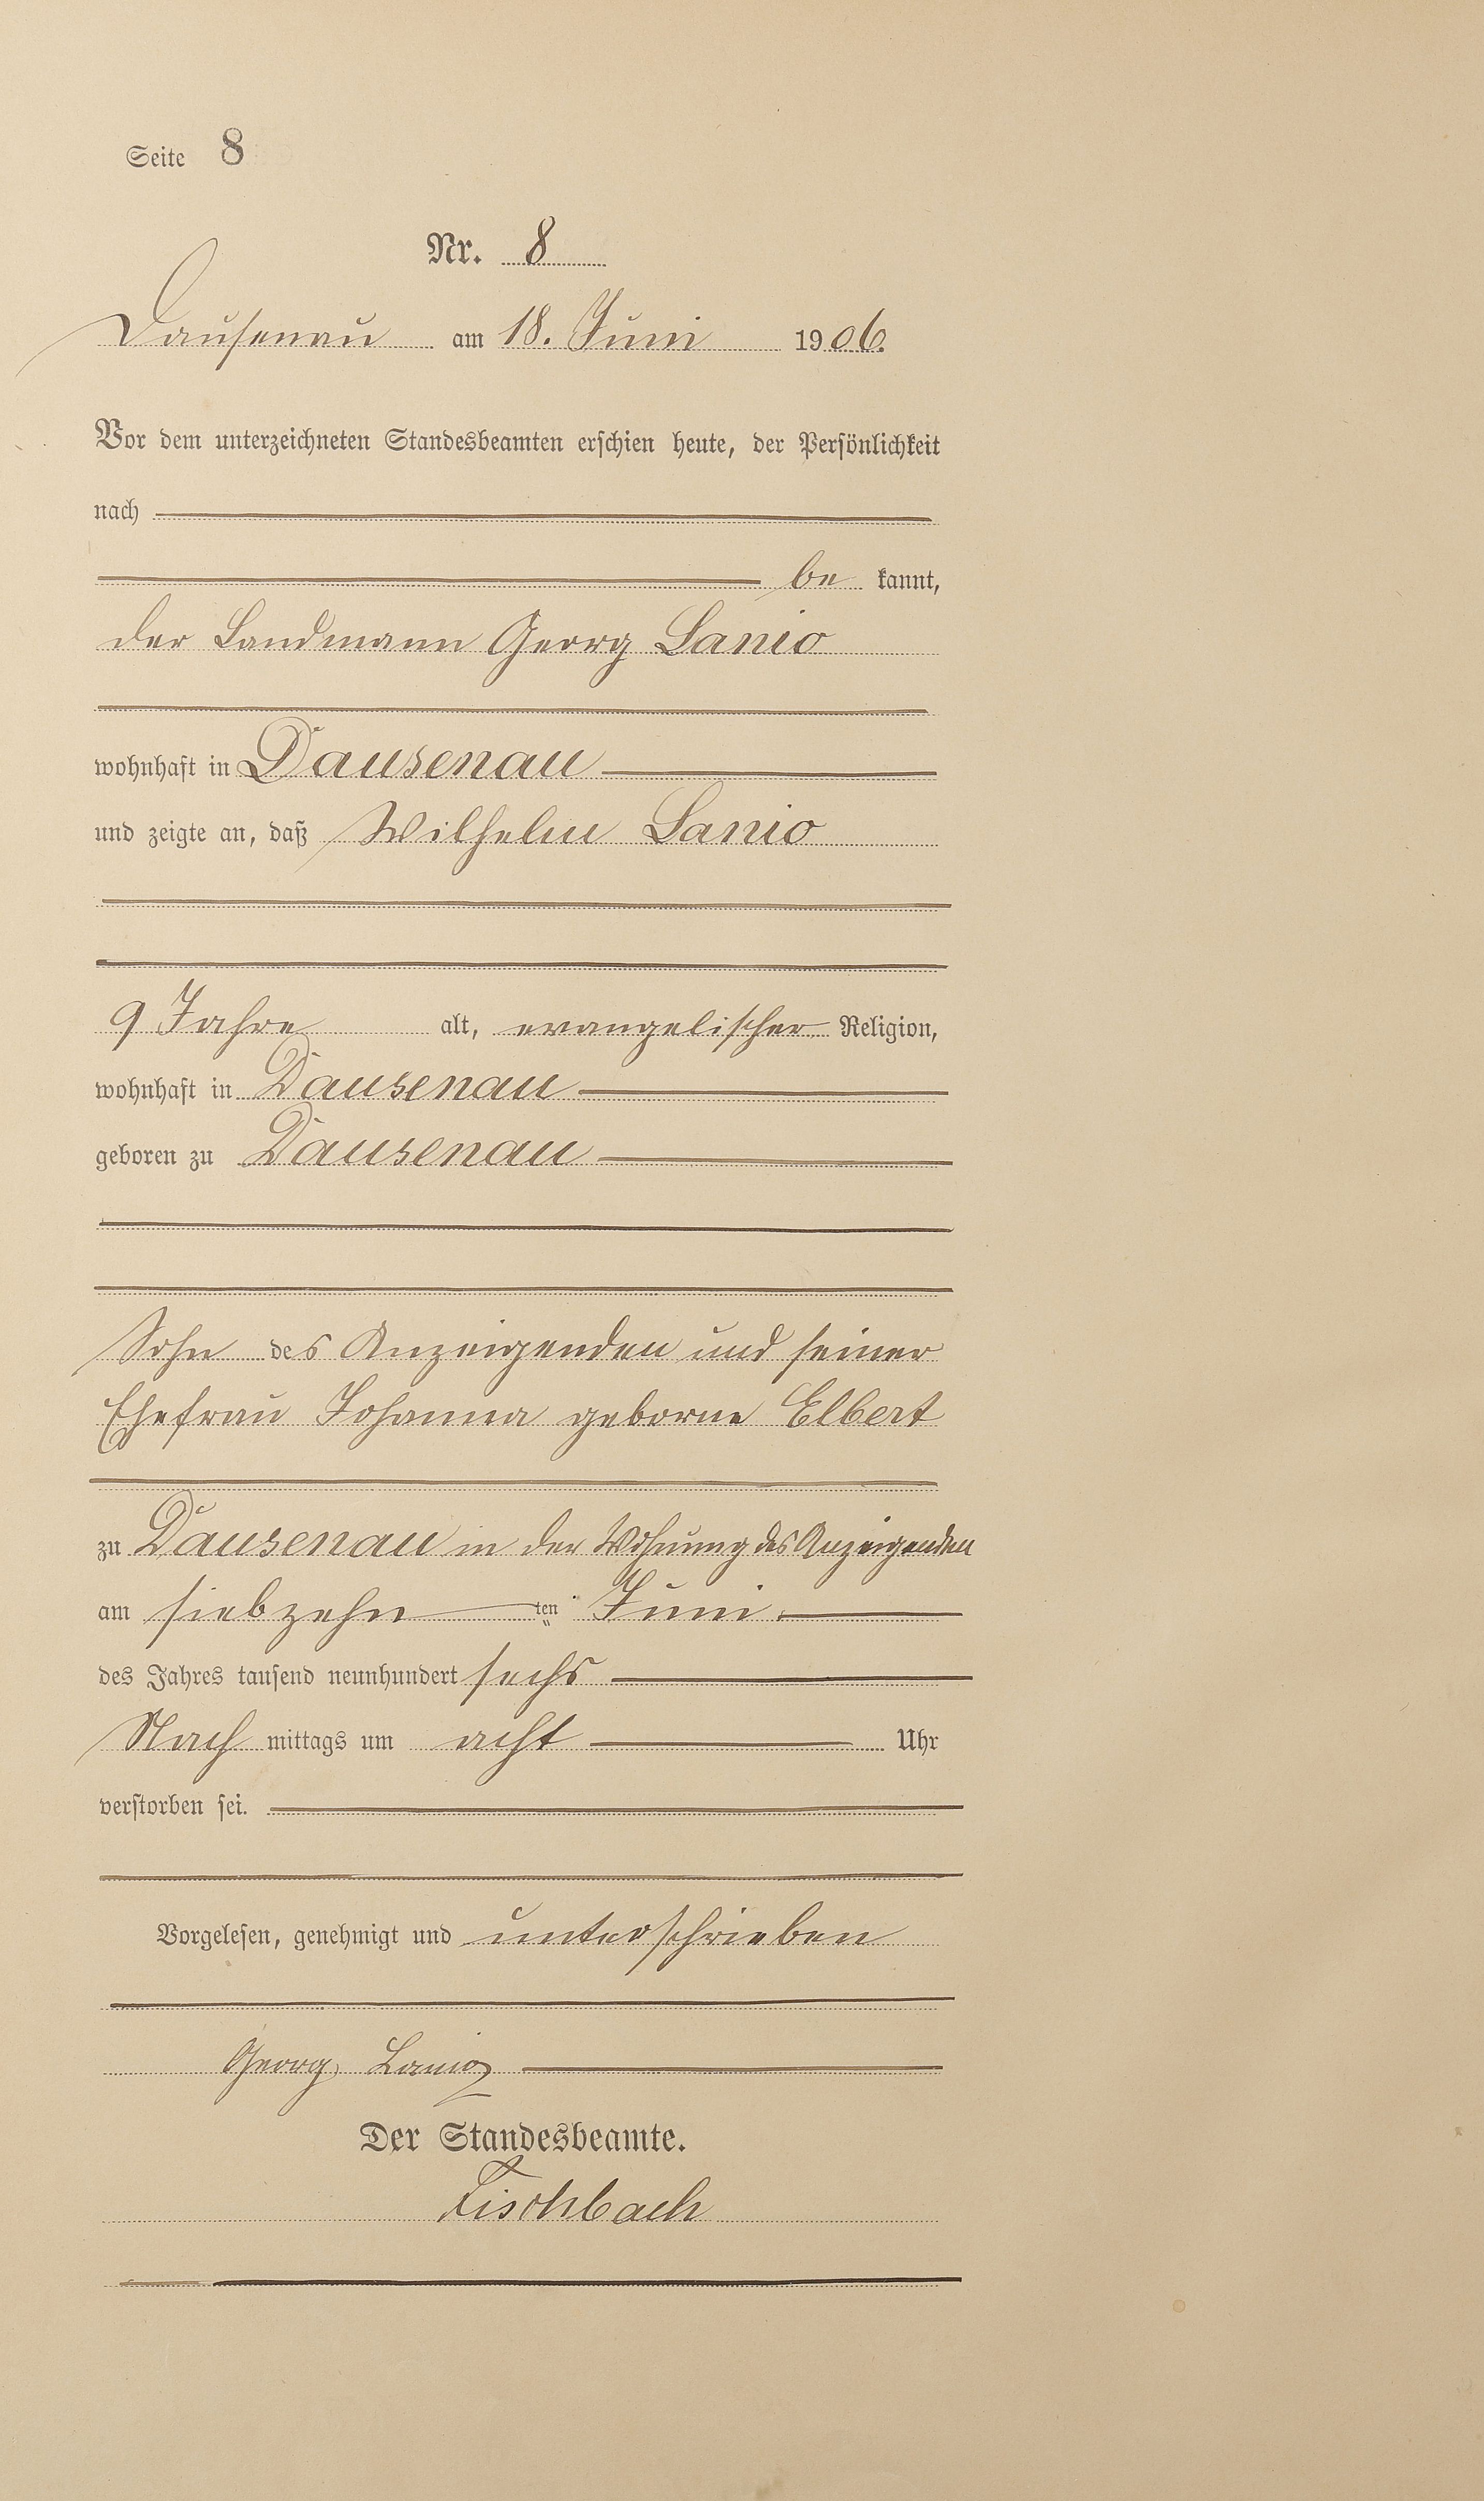 Seite 8
Nr. 8
Dausenau am 18. Juni 1906.
Vor dem unterzeichneten Standesbeamten erschien heute, der Persönlichkeit
nach
be kannt,
der Landmann Georg Lanio
wohnhaft in Dausenau
und zeigte an, daß Wilhelm Lanio
9 Jahre alt, evangelischer Religion,
wohnhaft in Dausenau
geboren zu Dausenau
Sohn des Anzeigenden und seiner
Ehefrau Johanna geborne Elbert
zu Dausenau in der Wohnung des Anzeigenden
am siebzehn ten Juni
des Jahres tausend neunhundert sechs
Nach mittags um acht Uhr
verstorben sei.
Vorgelesen, genehmigt und unterschrieben
Georg Lanio
Der Standesbeamte.
Fischbach